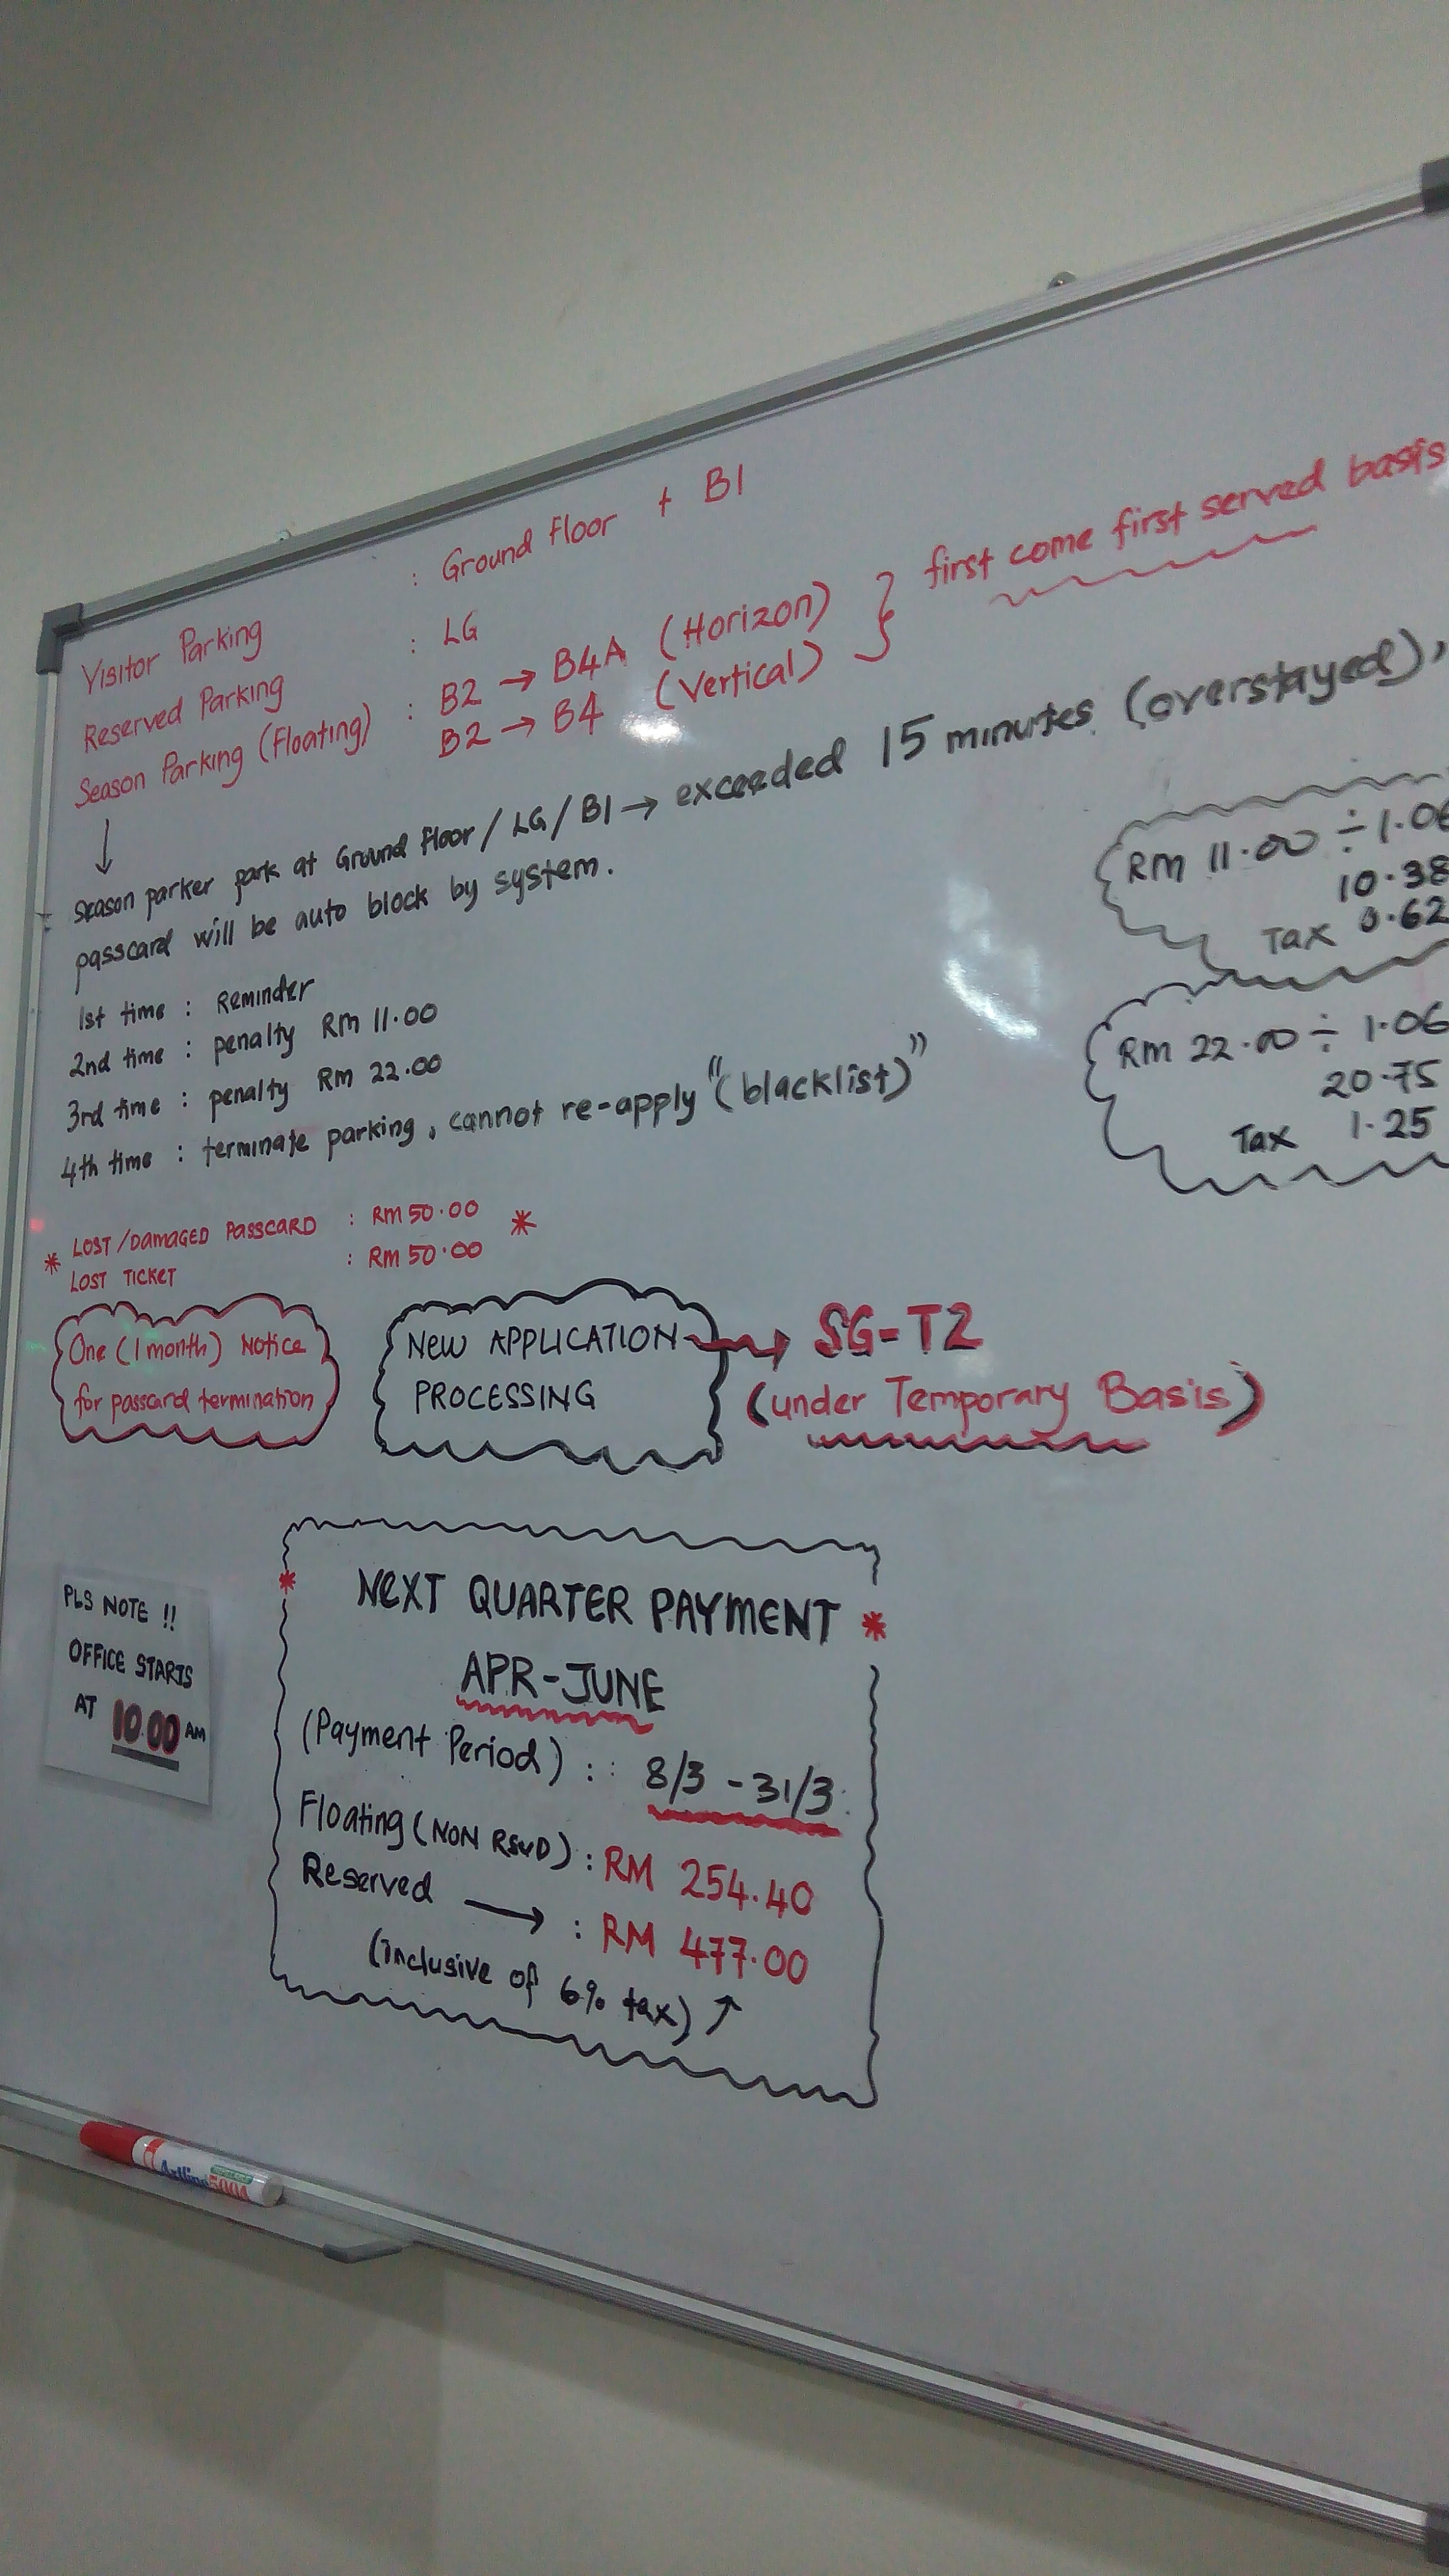 Visitor Parking : Ground Floor + B1
Reserved Parking : LG
Season Parking (Floating) : B2 → B4A (Horizon)
B2 → B4 (Vertical)
} first come first served basis
↓
season parker park at Ground Floor / LG / B1 → exceeded 15 minutes (overstayed),
passcard will be auto block by system.
1st time : Reminder
2nd time : penalty RM 11.00
3rd time : penalty RM 22.00
4th time : terminate parking, cannot re-apply "(blacklist)"
RM 11.00 ÷ 1.06
10.38
Tax 0.62
RM 22.00 ÷ 1.06
20.75
Tax 1.25
* LOST/DAMAGED PASSCARD : RM 50.00 *
LOST TICKET : RM 50.00
One (1 month) Notice
for passcard termination
NEW APPLICATION → SG-T2
PROCESSING
(under Temporary Basis)
PLS NOTE !!
OFFICE STARTS
AT 10.00 AM
* NEXT QUARTER PAYMENT *
APR-JUNE
(Payment Period) : : 8/3 - 31/3
Floating (NON RSVD) : RM 254.40
Reserved → : RM 477.00
(inclusive of 6% tax) ↑
Artline 500A